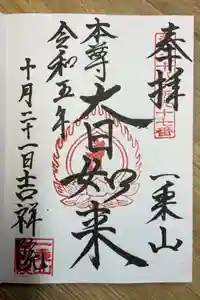 奉拝
一乗山
大日如来
本尊
令和五年
十月二十一日吉祥